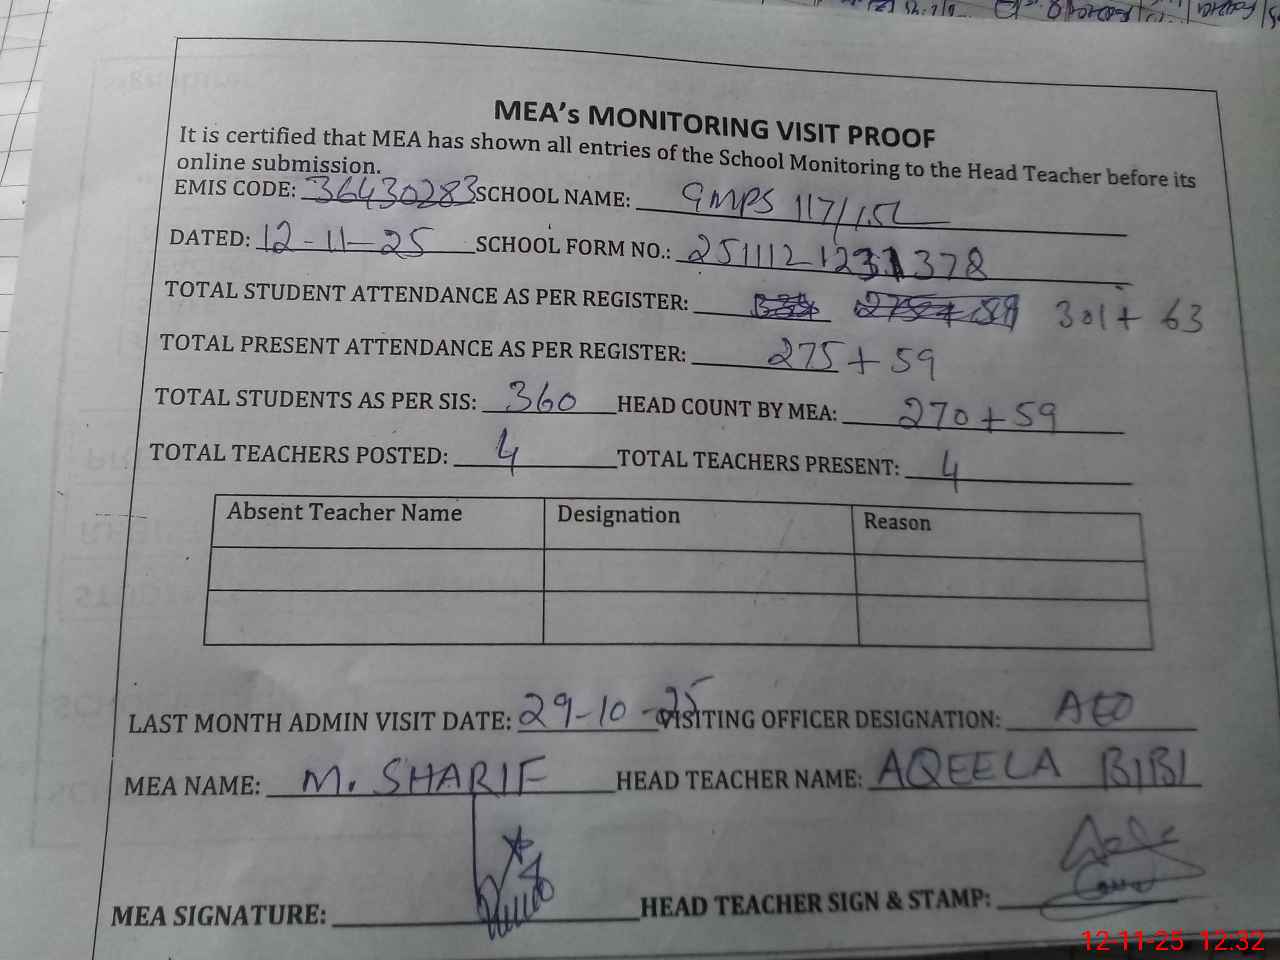 MEA's MONITORING VISIT PROOF
It is certified that MEA has shown all entries of the School Monitoring to the Head Teacher before its
online submission.
EMIS CODE: 36430283 SCHOOL NAME: GMPS 117/15L
DATED: 12-11-25 SCHOOL FORM NO.: 251112 1231378
TOTAL STUDENT ATTENDANCE AS PER REGISTER: 301+ 63
TOTAL PRESENT ATTENDANCE AS PER REGISTER: 275+59
TOTAL STUDENTS AS PER SIS: 360 HEAD COUNT BY MEA: 270+59
TOTAL TEACHERS POSTED: 4 TOTAL TEACHERS PRESENT: 4
Absent Teacher Name Designation Reason
LAST MONTH ADMIN VISIT DATE: 29-10-25 VISITING OFFICER DESIGNATION: AEO
MEA NAME: M. SHARIF HEAD TEACHER NAME: AQEELA BIBI
MEA SIGNATURE: HEAD TEACHER SIGN & STAMP:
12-11-25 12:32